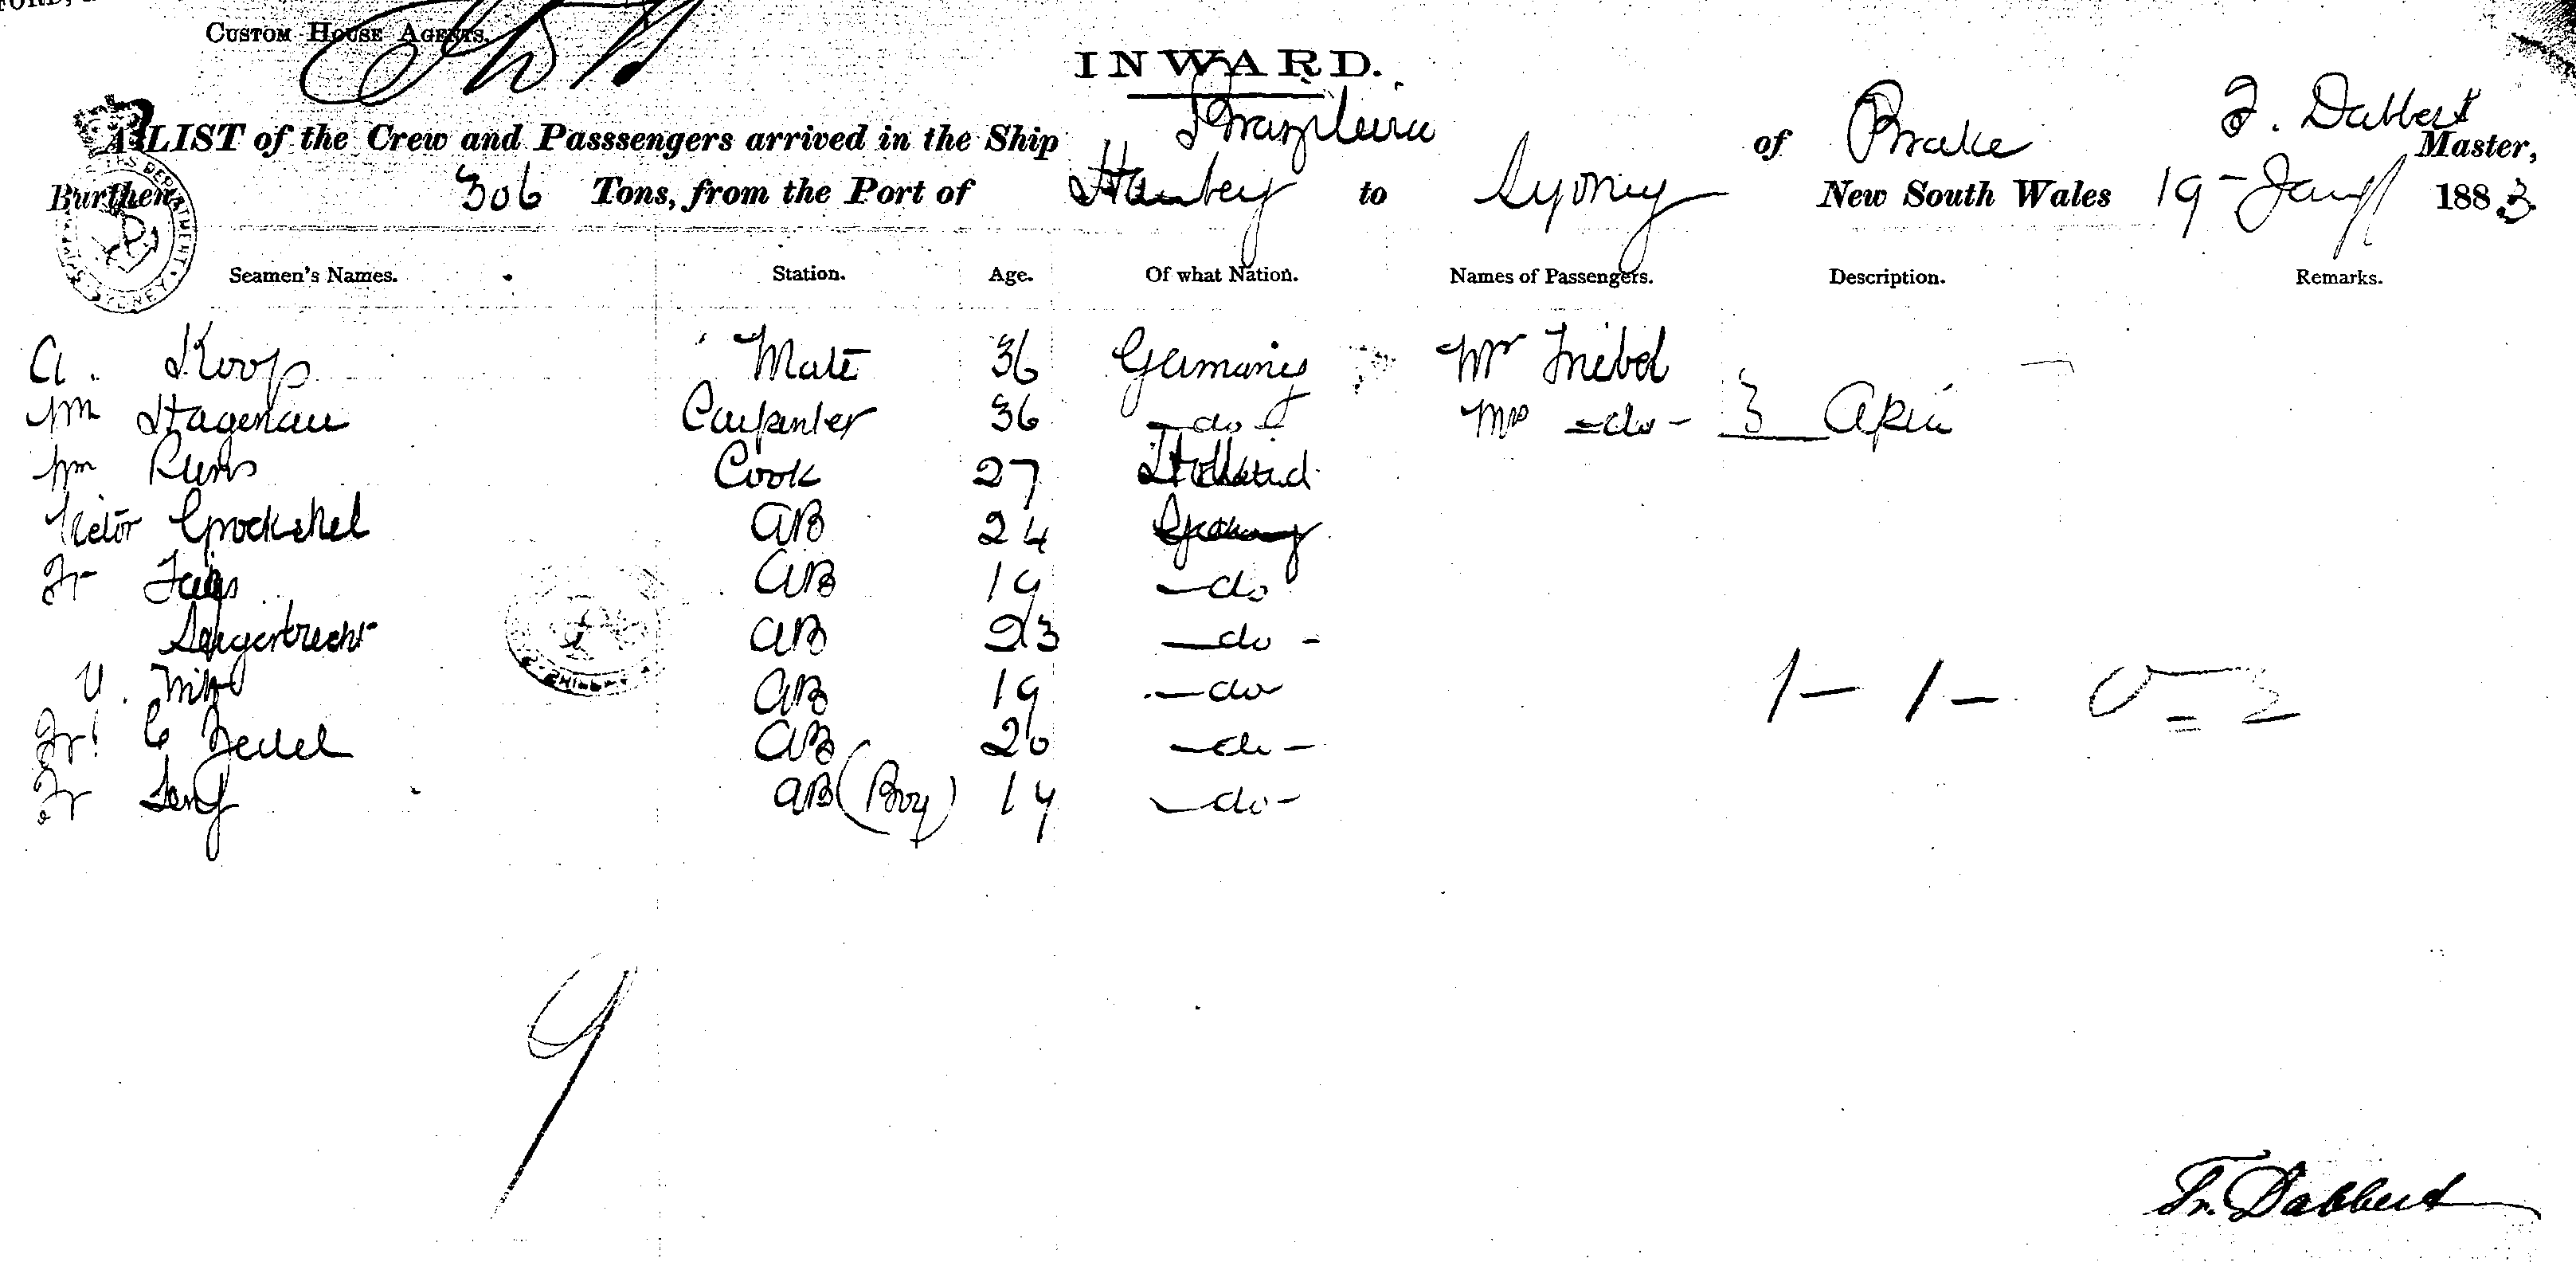 CUSTOM HOUSE AGENTS.
INWARD.
A LIST of the Crew and Passsengers arrived in the Ship Brazileira of Brake F. Dabbert Master,
Burthen 306 Tons, from the Port of to Sydney New South Wales 19 - Jany 1883
Seamen's Names. Station. Age. Of what Nation. Names of Passengers. Description. Remarks.
A. Koop Mate 36 Germany Mr Triebel
Wm Hagenau Carpenter 36 - do Mrs - do - 3 Apia
Wm Cook 27 Holland
Victor Grockshel AB 24
Fr AB 19 - do
AB 23 - do -
AB 19 - do
Fr. C AB 20 - do -
Fr AB (Boy) 14 - do -
1 - 1 - 0 = 2
9
Fr. Dabbert